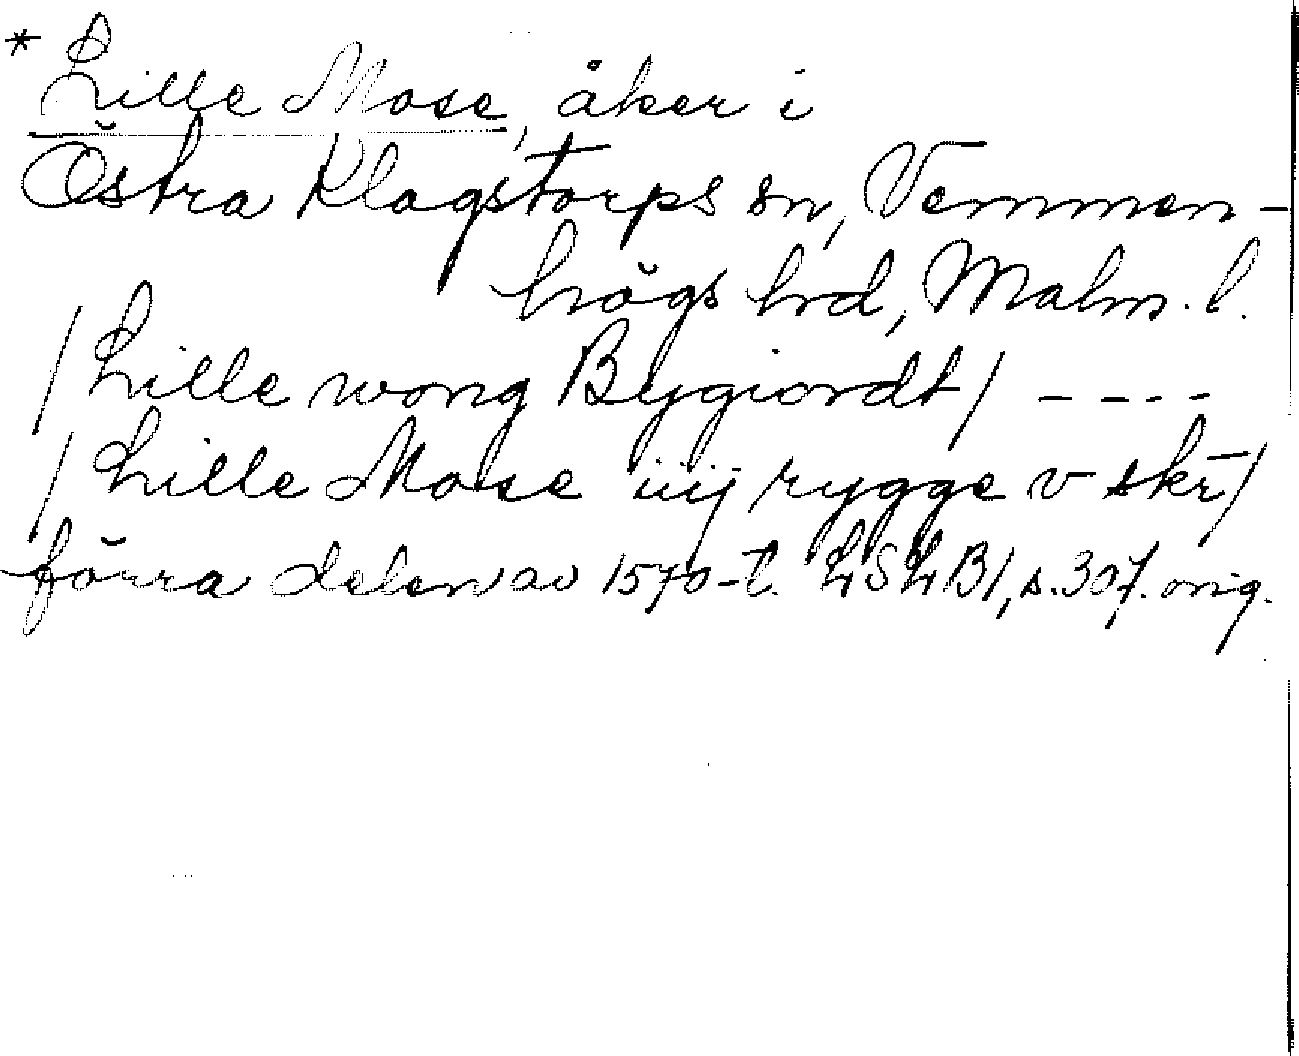 * Lille Mose, åker i
Östra Klagstorps sn, Vemmen-
högs hrd, Malm. l.
/Lille wong Bygiordt/ ----
/Lille Mose iiij rygge v skr̄/
förra delen av 1570-t. LSLB1, s. 307. orig.